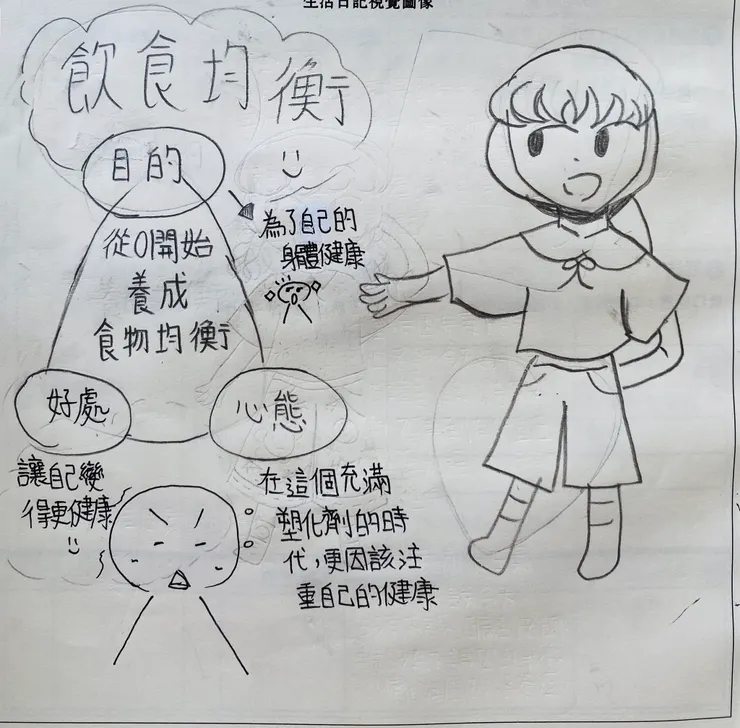 生活日記視覺圖像
飲食均衡
目的
為了自己的
身體健康
從0開始
養成
食物均衡
好處
讓自己變
得更健康
心態
在這個充滿
塑化劑的時
代，更因該注
重自己的健康